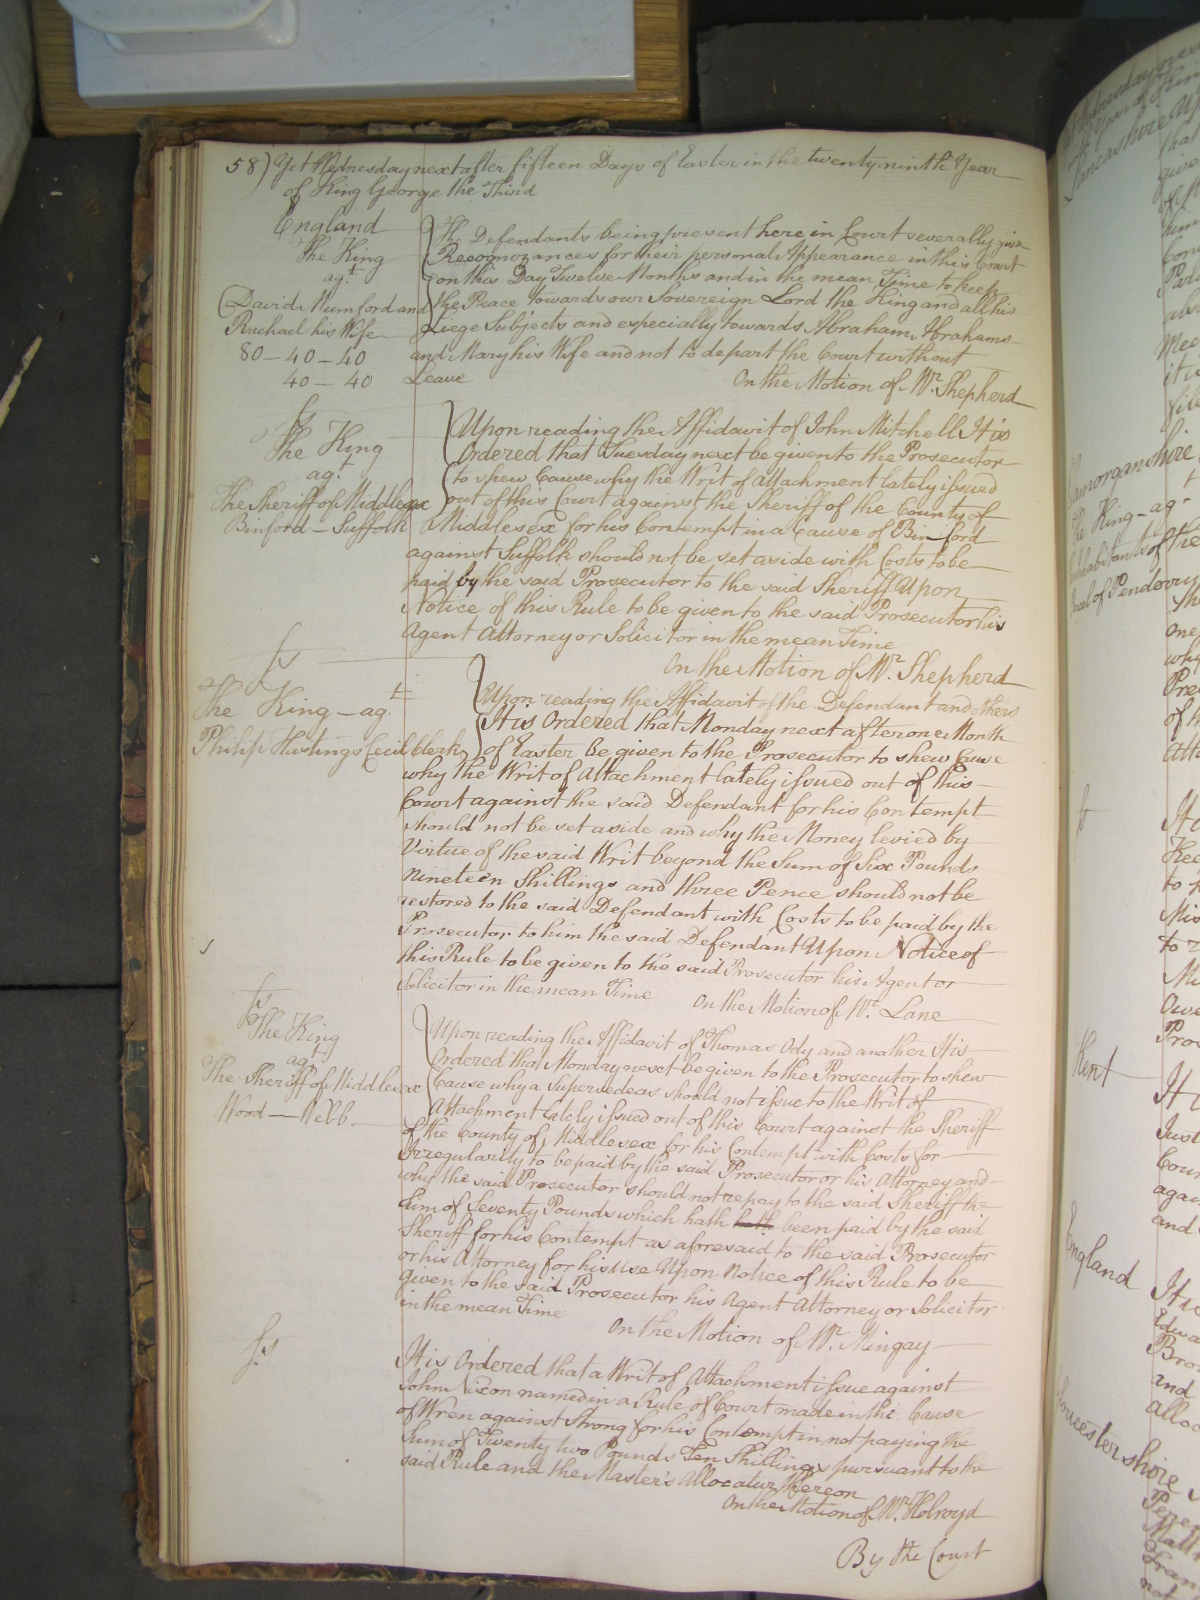 58) Yet Wednesday next after fifteen Days of Easter in the twenty ninth Year
of King George the Third
England
The King
agt
David Mumford and
Rachael his Wife
80 – 40 – 40
40 – 40
The Defendants being present here in Court severally give
Recognizances for their personal Appearance in this Court
on this Day Twelve Months and in the mean Time to keep
the Peace towards our Sovereign Lord the King and all his
Liege Subjects and especially towards Abraham Abrahams
and Mary his Wife and not to depart the Court without
Leave On the Motion of Mr. Shepherd
fs
The King
agt
The Sheriff of Middlesex
Binford – Suffolk
Upon reading the Affidavit of John Mitchell It is
Ordered that Tuesday next be given to the Prosecutor
to shew Cause why the Writ of Attachment lately issued
out of this Court against the Sheriff of the County of
Middlesex for his Contempt in a Cause of Binford
against Suffolk should not be set aside with Costs to be
paid by the said Prosecutor to the said Sheriff Upon
Notice of this Rule to be given to the said Prosecutor his
Agent Attorney or Solicitor in the mean Time
On the Motion of Mr. Shepherd
fs
The King – agt
Philip Hastings Cecil Clerk
Upon reading the Affidavit of the Defendant and others
It is Ordered that Monday next after one Month
of Easter be given to the Prosecutor to shew Cause
why the Writ of Attachment lately issued out of this
Court against the said Defendant for his Contempt
should not be set aside and why the Money levied by
Virtue of the said Writ beyond the Sum of Six Pounds
Nineteen Shillings and three Pence should not be
restored to the said Defendant with Costs to be paid by the
Prosecutor to him the said Defendant Upon Notice of
this Rule to be given to the said Prosecutor his Agent or
Solicitor in the mean Time On the Motion of Mr. Lane
fs
The King
agt
The Sheriff of Middlesex
Wood – Webb
Upon reading the Affidavit of Thomas Ody and another It is
Ordered that Monday next be given to the Prosecutor to shew
Cause why a Supersedeas should not issue to the Writ of
Attachment lately issued out of this Court against the Sheriff
of the County of Middlesex for his Contempt with Costs for
Irregularity to be paid by the said Prosecutor or his Attorney and
why the said Prosecutor should not repay to the said Sheriff the
Sum of Seventy Pounds which hath hath been paid by the said
Sheriff for his Contempt as aforesaid to the said Prosecutor
or his Attorney for his use Upon Notice of this Rule to be
given to the said Prosecutor his Agent Attorney or Solicitor
in the mean Time
On the Motion of Mr. Mingay
fs
It is Ordered that a Writ of Attachment issue against
John Nixon named in a Rule of Court made in the Cause
of Wren against Strong for his Contempt in not paying the
Sum of Twenty two Pounds Ten Shillings pursuant to the
said Rule and the Master's Allocatur thereon
On the Motion of Mr. Holroyd
By the Court
Lancashire
Glamorganshire
The King – agt
Inhabitants of the
of Penderry
Kent
England